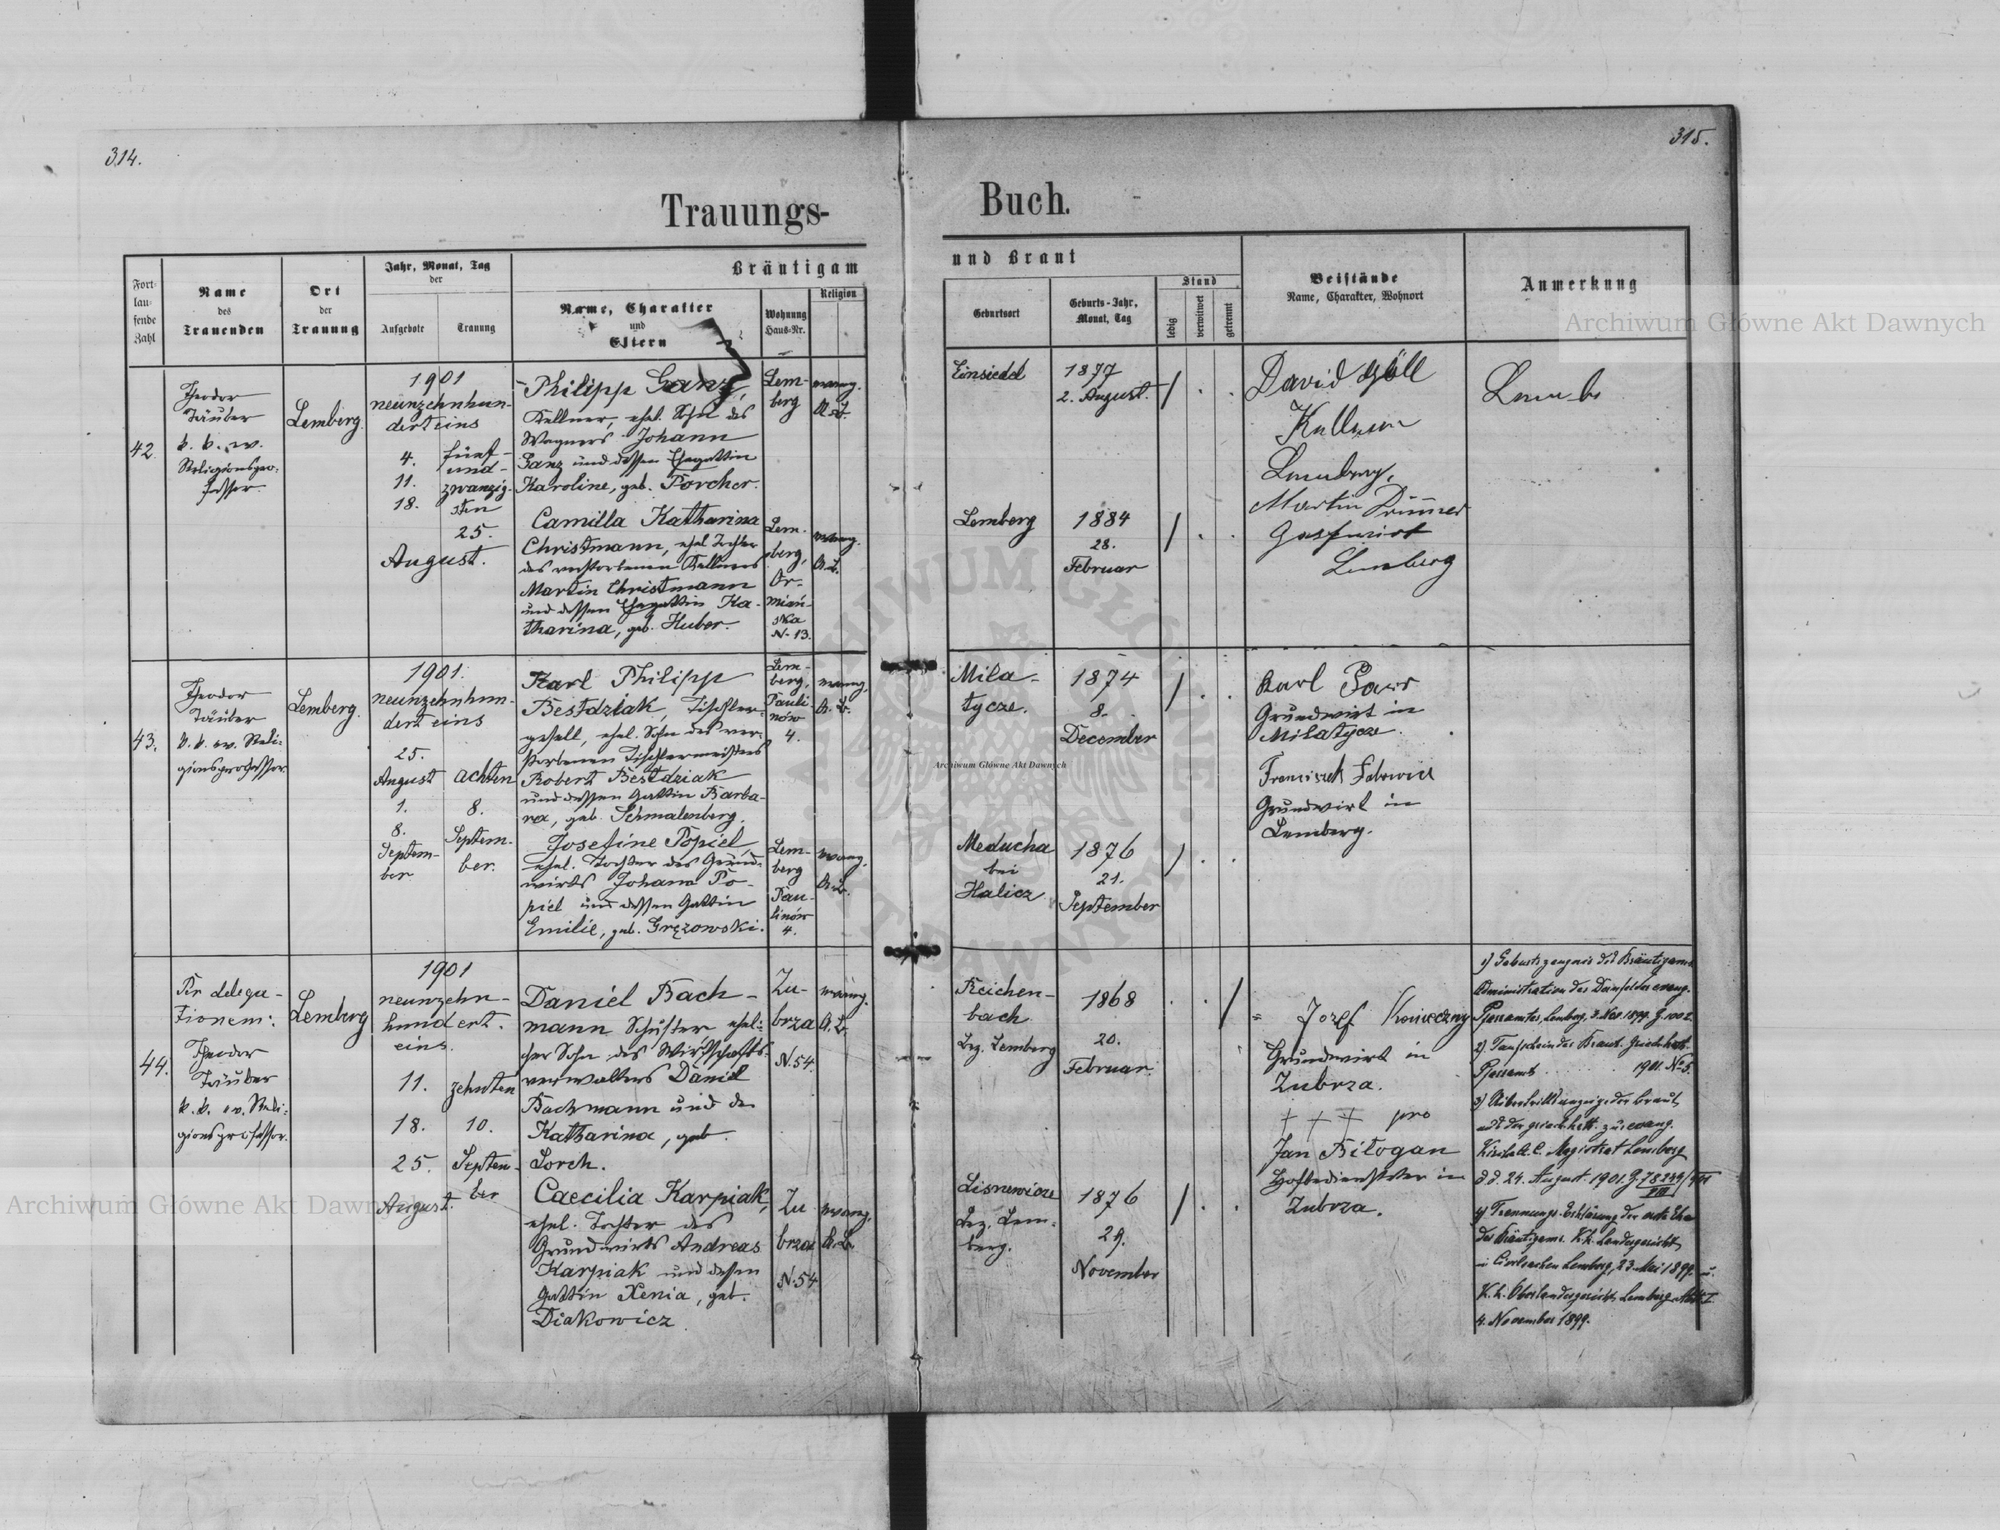 314.
315.
Trauungs-
Buch.
Fort-
lau-
fende
Zahl
Name
des
Trauenden
Ort
der
Trauung
Jahr, Monat, Tag
der
Aufgebote
Trauung
Bräutigam
Name, Charakter
und
Eltern
Wohnung
Haus-Nr.
Religion
und Braut
Geburtsort
Geburts-Jahr,
Monat, Tag
Stand
ledig
verwitwet
getrennt
Beistände
Name, Charakter, Wohnort
Anmerkung
42.
Theodor
Täuber
k. k. ev.
Religionspro-
fessor.
Lemberg.
1901
neunzehnhun-
dert eins
4.
11.
18.
fünf-
und-
zwanzig-
sten
25.
August.
Philipp Ganz,
Kellner, ehel. Sohn des
Wagners Johann
Ganz und dessen Ehegattin
Karoline, geb. Porcher.
Lem-
berg
evang.
A. B.
Camilla Katharina
Christmann, ehel. Tochter
des verstorbenen Kellners
Martin Christmann
und dessen Ehegattin Ka-
tharina, geb. Huber.
Lem-
berg,
Or-
miań-
ska
N. 13.
evang.
A. B.
Einsiedel
1877
2. August.
Lemberg
1884
28.
Februar
David Göll
Kellner
Lemberg.
Martin
Gastwirt
Lemberg
43.
Theodor
Täuber
k. k. ev. Reli-
gionsprofessor.
Lemberg.
1901.
neunzehnhun-
dert eins
25.
August
1.
8.
Septem-
ber
achten
8.
Septem-
ber.
Karl Philipp
Bestdziak, Tischler-
gesell, ehel. Sohn des ver-
storbenen Tischlermeisters
Robert Bestdziak
und dessen Gattin Barba-
ra, geb. Schmalenberg.
Lem-
berg,
Pauli
nów
4.
evang.
A. B.
Josefine Popiel,
ehel. Tochter des Grund-
wirts Johann Po-
piel und dessen Gattin
Emilie, geb. Gręzowski.
Lem-
berg
Pau-
linów
4.
evang.
A. B.
Mila-
tycze.
1874
8.
December
Meducha
bei
Halicz
1876
21.
September
Karl
Grundwirt in
Milatycze.
Franciszek
Grundwirt in
Lemberg.
44.
Per delega-
tionem:
Theodor
Täuber
k. k. ev. Reli-
gionsprofessor.
Lemberg
1901
neunzehn-
hundert
eins.
11.
18.
25.
August.
zehnten
10.
Septem-
ber
Daniel Bach-
mann Schuster eheli-
cher Sohn des Wirtschafts-
verwalters Daniel
Bachmann und der
Katharina, geb.
Lorch.
Zu-
brza
N. 54.
evang.
A. B.
Caecilia Karpiak,
ehel. Tochter des
Grundwirts Andreas
Karpiak und dessen
Gattin Xenia, geb.
Diakowicz
Zu-
brza
N. 54
evang.
A. B.
Reichen-
bach
Bez. Lemberg
1868
20.
Februar.
Lisnewicze
Bez. Lem-
berg.
1876
29.
November
Jozef Konieczny
Grundwirt in
Zubrza.
+ + + pro
Jan Bilogan
Hofbediensteter in
Zubrza.
1) Geburtszeugnis des Bräutigams
Administration des evang.
Pfarramtes, Lemberg, 3. Nov. 1899.
2) Taufschein der Braut. Griech. kath.
Pfarramt 1901. No 5.
3) Übertrittsanzeige der Braut
aus der griech. kath. zur evang.
Kirche A. C. Magistrat Lemberg
d. d. 24. August 1901.
4) Trennungs-Erklärung der Ehe
des Bräutigams. K. k. Landesgericht
in Civilsachen Lemberg, 23. Mai 1899. u.
K. k. Oberlandesgericht Lemberg
4. November 1899.
Archiwum Główne Akt Dawnych
Archiwum Główne Akt Dawnych
Archiwum Główne Akt Dawnych